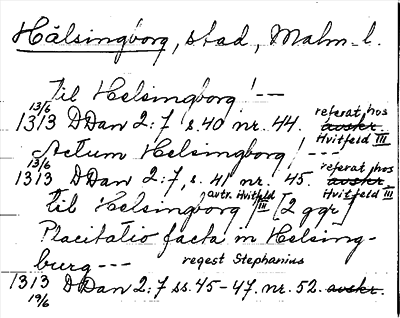 Hälsingborg, stad, Malm. l.
Til Helsingborg! --
13/6 referat hos
1313 DDan 2:7 s. 40 nr. 44. avskr. Hvitfeld III
Actum Helsingborg! ---
13/6 referat hos
1313 DDan 2:7, s. 41 nr. 45. avskr. Hvitfeld III
avtr. Hvitfeld III
til Helsingborg [2 ggr]
Placitatio facta in Helsing-
burg --- regest Stephanius
1313 DDan 2:7 ss. 45-47. nr. 52. avskr.
19/6